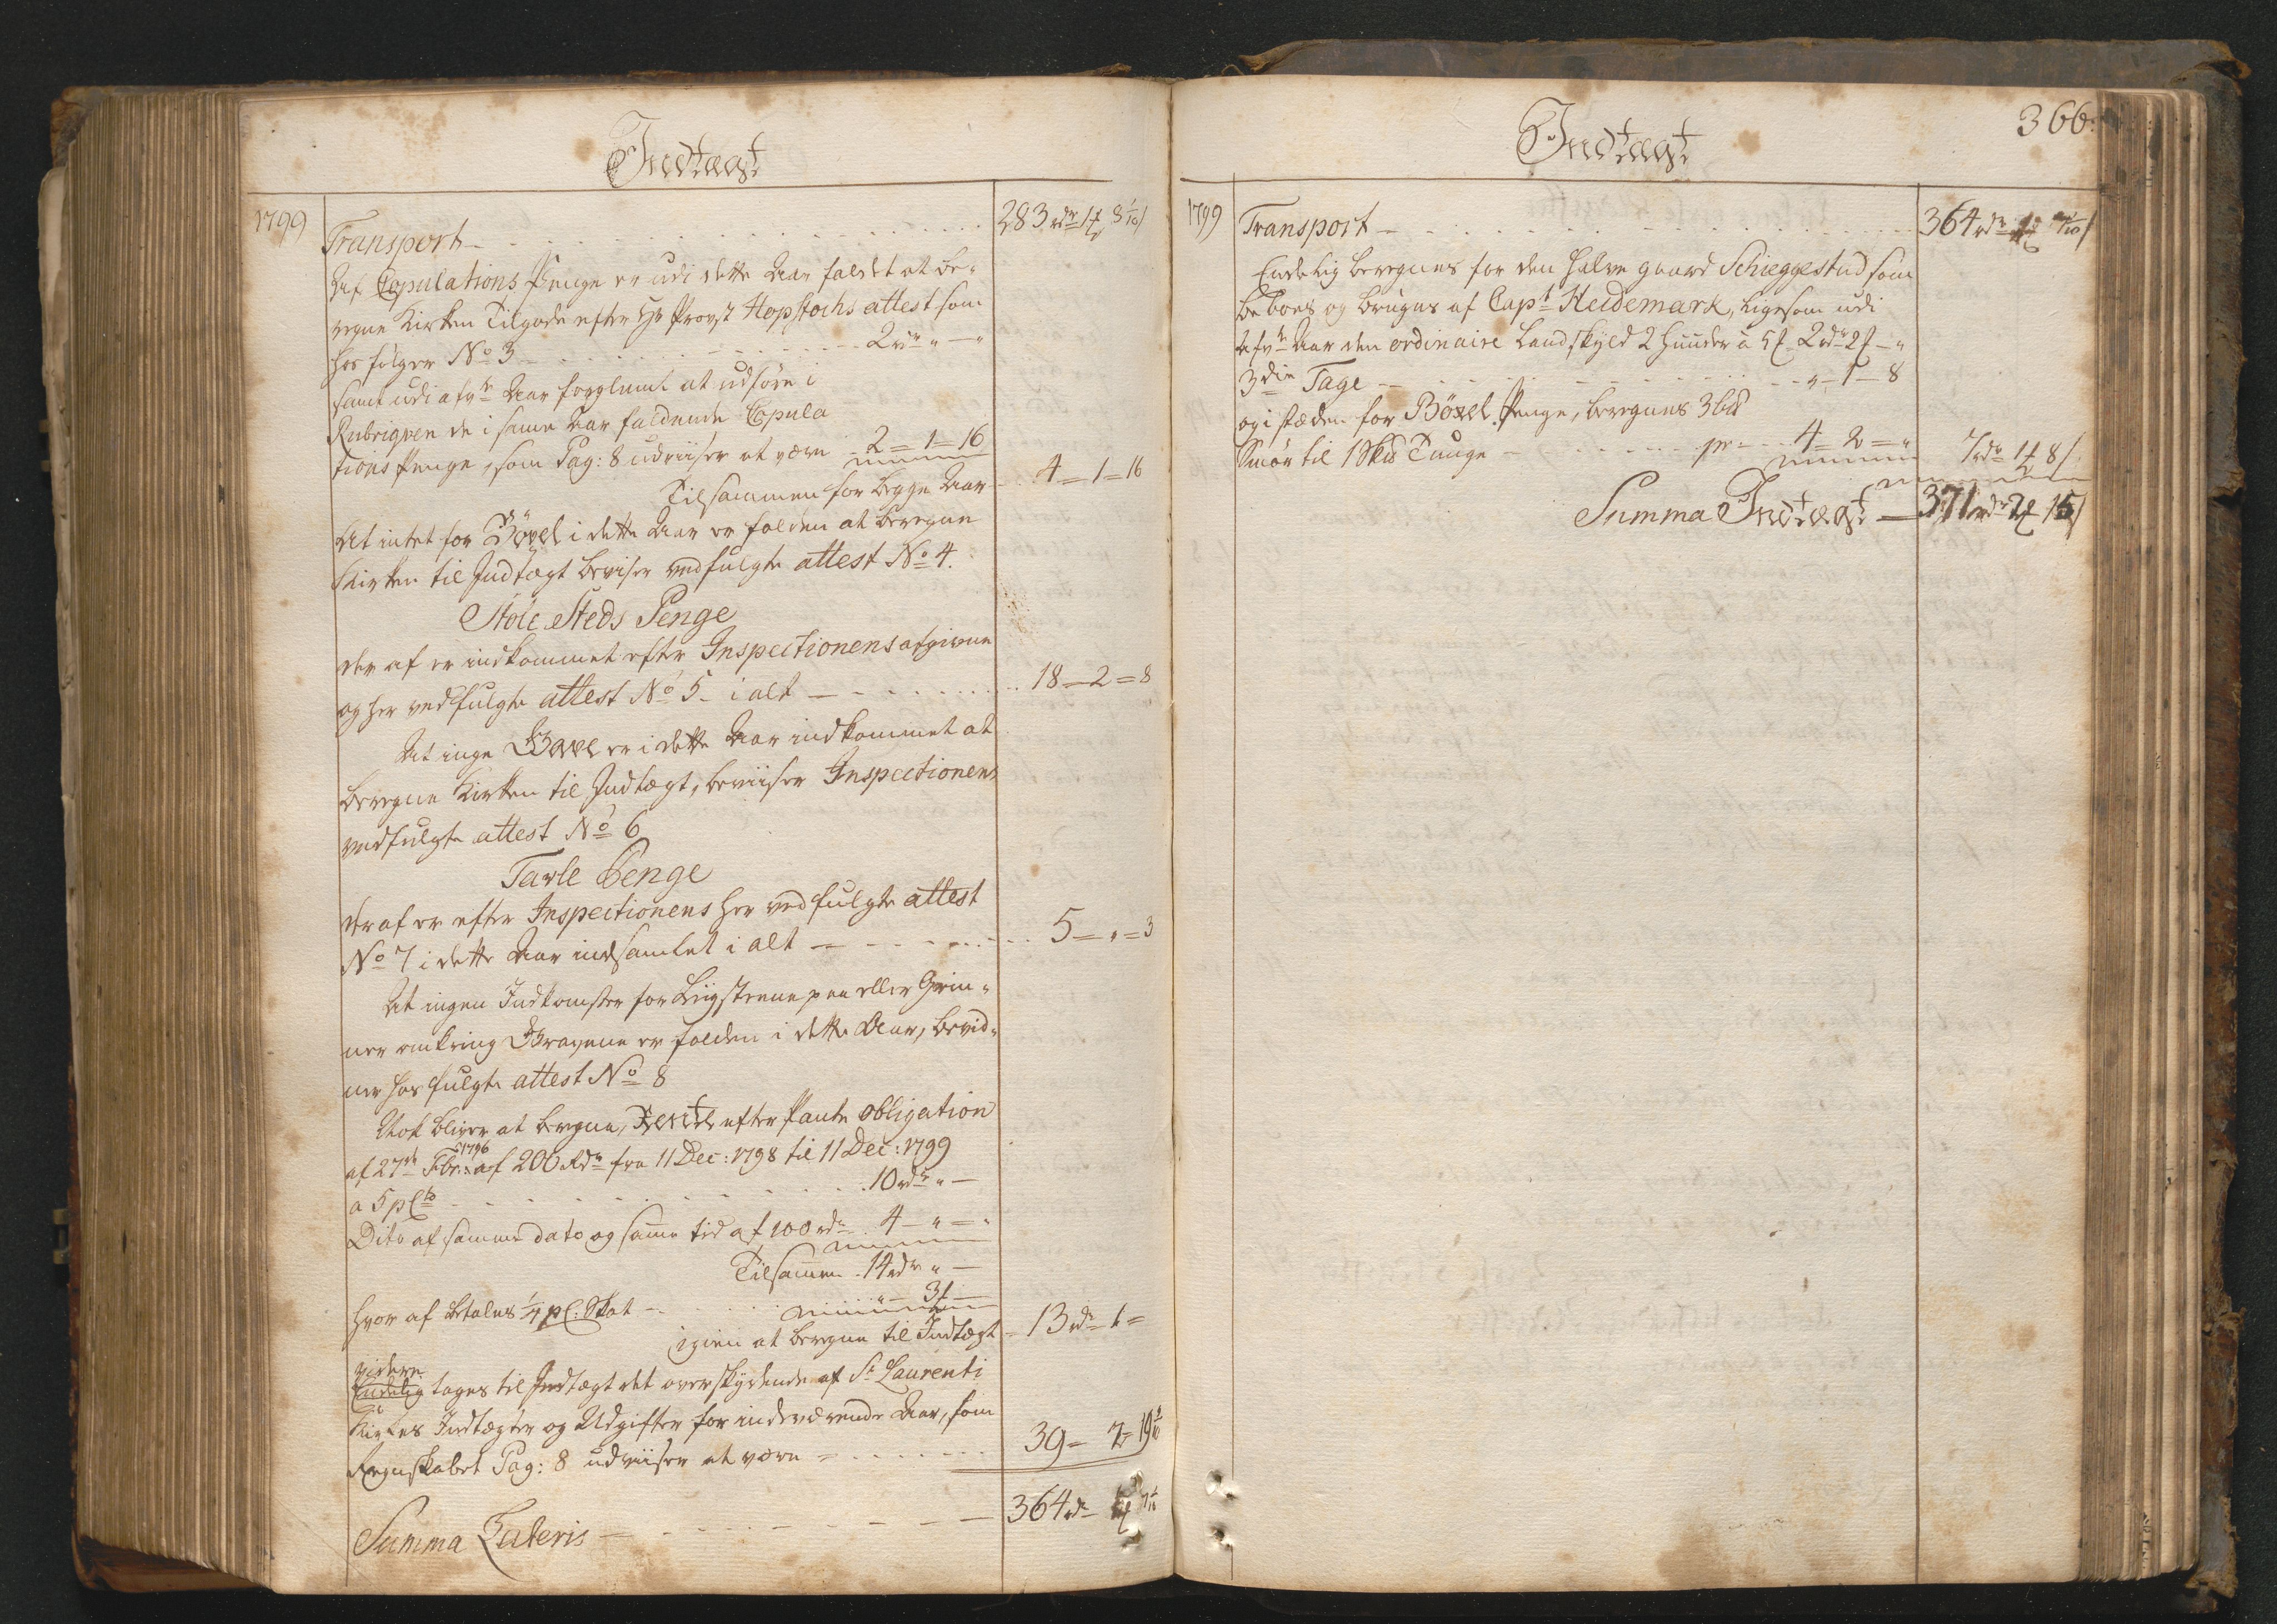 Indtægt
1799
Transport - 283 rdr 1 ℔ 8 1/10 ſ
Af Copulations Penge er udi dette Aar faldet at be-
regne Kirken Tilgode efter Hr Provst Hopstochs attest som
hos følger No 3 - 2 rdr " - "
samt udi afvte Aar forglemt at udføre i
Rubriqven de i same Aar faldende Copula
tions Penge, som Pag: 8 udviiser at være - 2 = 1 = 16
Tilsammen for begge Aar - 4 = 1 = 16
At intet for Böxel i dette Aar er falden at beregne
Kirken til Indtægt beviser vedfulgte attest No 4.
Stole Steds Penge
der af er indkommet efter Inspectionens afgivne
og her vedfulgte attest No 5 - i alt - 18 = 2 = 8
At inge Gave er i dette Aar indkommet at
beregne Kirken til Indtægt, beviiser Inspectionens
vedfulgte attest No 6
Tavle Penge
der af er efter Inspectionens her vedfulgte attest
No 7 i dette Aar indsamlet i alt - 5 = " = 3
At ingen Indkomster for Liigsteene paa eller Grin-
ner omkring Gravene er falden i dette Aar, bevid-
ner hos fulgte attest No 8
Nok bliver at beregne, Rente efter Pante obligation
af 27de Fbr: 1796 af 200 Rdr fra 11 Dec: 1798 til 11 Dec: 1799
a 5 pCto - 10 rdr " -
Dito af samme dato og same tid af 100 rdr 4 - " = "
Tilsamen 14 rdr " -
hvor af betales 1/4 pC: Skat - " - 3 ℔ -
igien at beregne til Indtægt - 13 rdr 1 =
videre
Endelig tages til Indtægt det overskydende af St Laurenti
Kirkes Indtægter og Udgifter for indeværende Aar, som
Regnskabet Pag: 8 udviiser at være - 39 = 2 = 19
Summa Lateris - 364 rdr
Indtægt
366.
1799
Transport - 364 rdr
Endelig beregnes for den halve gaard Schieggestad som
beboes og bruges af Capt Heidemark, ligesom udi
afvte Aar den ordinaire Landskyld 2 Huuder à 5 ℔ 2 rdr 2 ℔ - "
3die Tage - " - 1 - 8
og i stæden for Böxel Penge, beregnes 3 bd
Smør til 1 Skd Tunge - pr - 4 = 2 = " 7 rdr 1 ℔ 8 ſ
Summa Indtægt - 371 rdr 2 ℔ 15 ſ